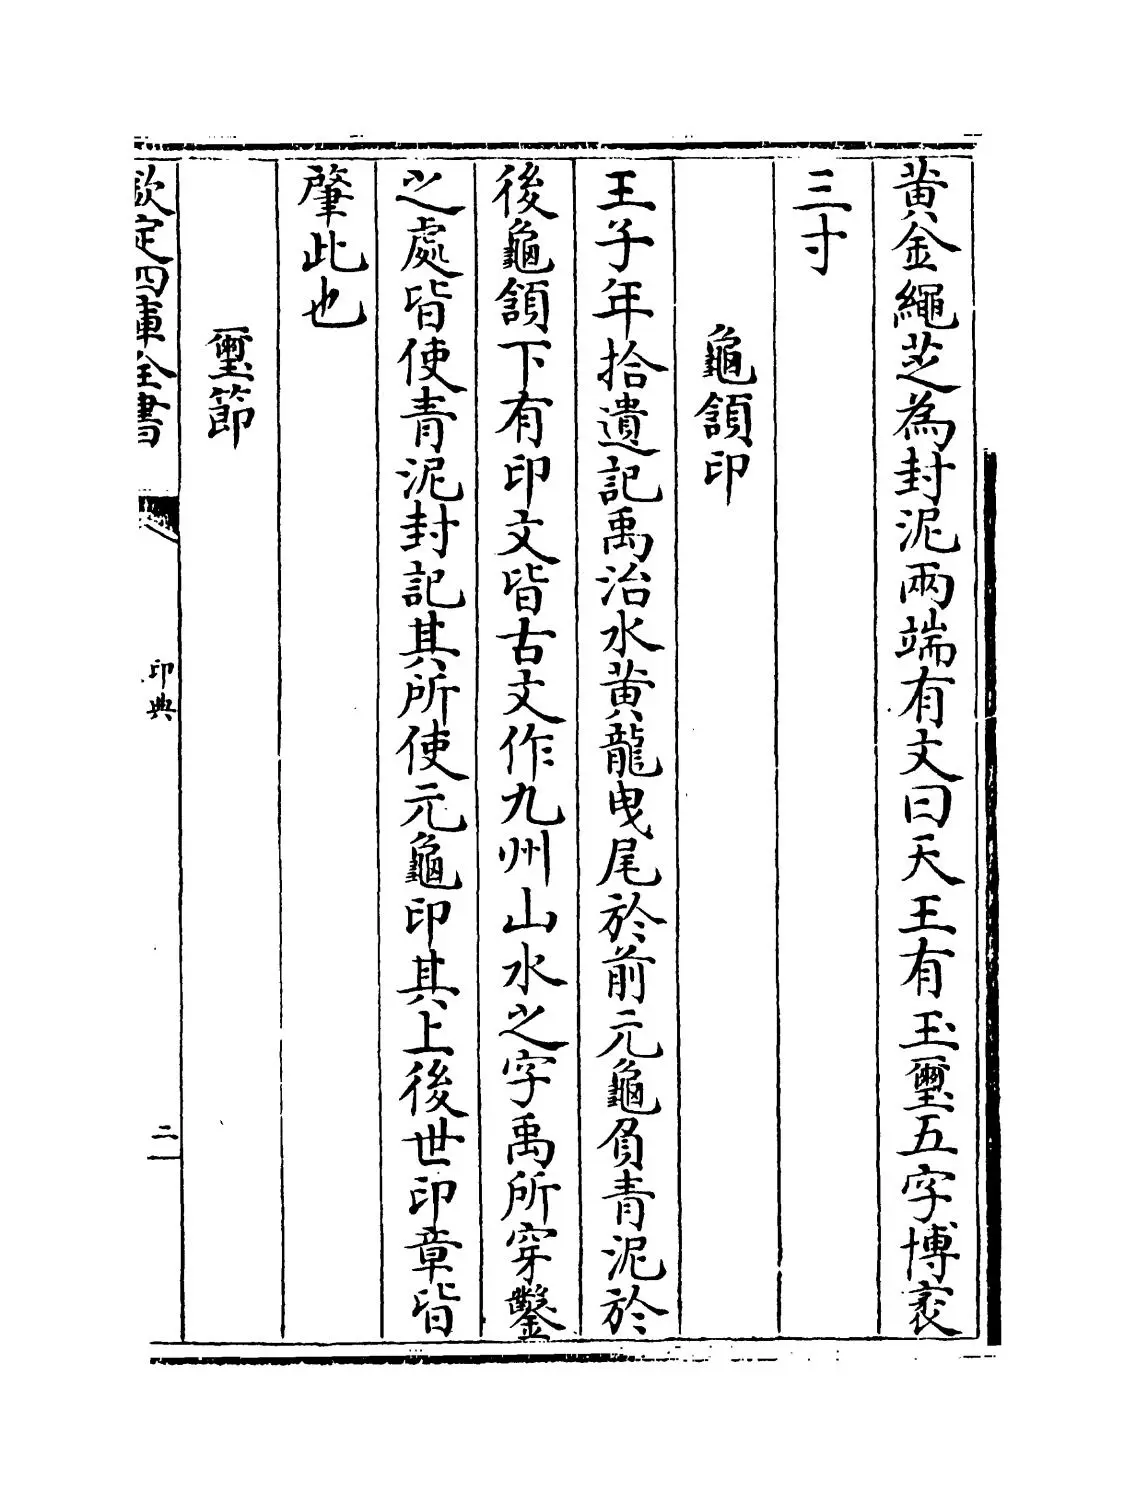 黄金繩芝為封泥兩端有文曰天王有玉璽五字博袤
三寸
龜頷印
王子年拾遺記禹治水黄龍曳尾於前元龜負青泥於
後龜頷下有印文皆古文作九州山水之字禹所穿鑿
之處皆使青泥封記其所使元龜印其上後世印章皆
肇此也
璽節
欽定四庫全書
印典
二